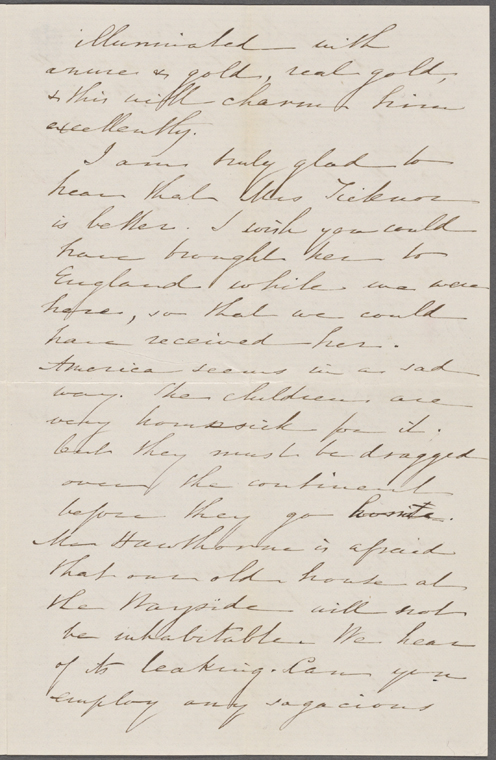 illuminated with
azure & gold, real gold,
& this will charm him
excellently.
I am truly glad to
hear that Mrs Ticknor
is better. I wish you could
have brought her to
England while we were
here, so that we could
have received her.
America seems in a sad
way. The children are
very homesick for it.
but they must be dragged
over the continent
before they go
Mr Hawthorne is afraid
that our old house at
the Wayside will not
be inhabitable. We hear
of its leaking. Can you
employ any sagacious